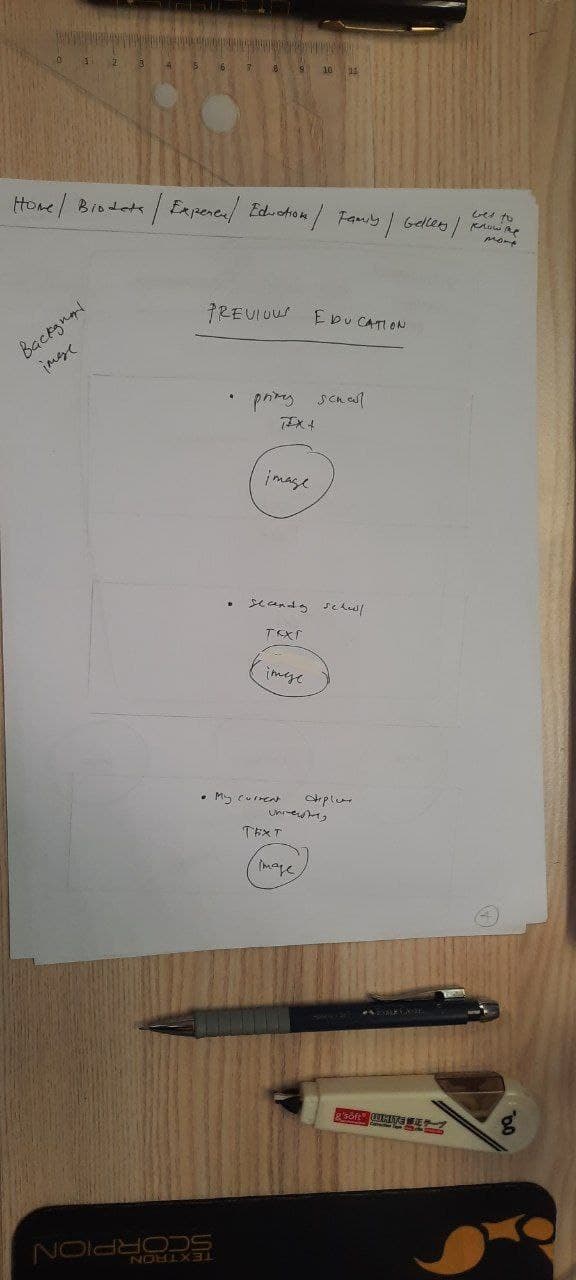 0 1 2 3 4 5 6 7 8 9 10 11
Home / Biodata / Experence / Eduction / Family / Gallery / Get to
know me
more
Background
image
PREVIOUS EDUCATION
• primy school
TEXT
image
• secondy school
TEXT
image
• My current
university
TEXT
image
4
g'soft WHITE 修正テープ
Correction Tape
g'
TEXTRON
SCORPION